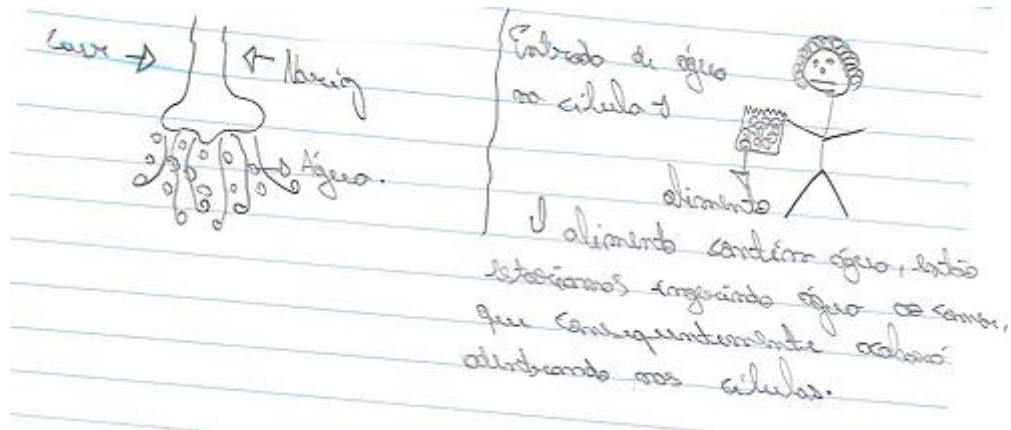 Nariz
Água.
Entrada de água
na célula
alimento
O alimento contém água, então
estaríamos ingerindo água ao comer,
que consequentemente acabará
adentrando nas células.